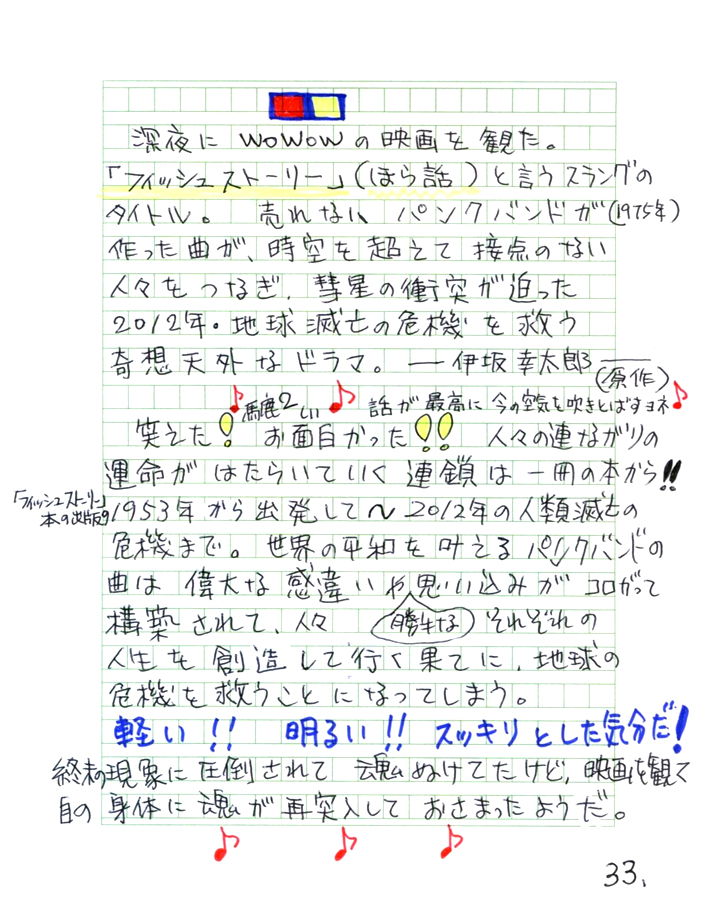 深夜に WOWOWの映画を観た。
「フィッシュストーリー」(ほら話)と言うスラングの
タイトル。 売れない パンクバンドが(1975年)
作った曲が、時空を超えて 接点のない
人々をつなぎ、彗星の衝突が迫った
2012年・地球滅亡の危機を救う
奇想天外なドラマ。 ― 伊坂幸太郎
(原作)
馬鹿2しい 話が最高に今の空気を吹きとばすヨネ♪
笑えた! お面白かった!! 人々の連ながりの
運命が はたらいていく 連鎖は 一冊の本から!!
「フィッシュストーリー」
本の出版の
1953年から出発して〜2012年の人類滅亡の
危機まで。世界の平和を叶えるパンクバンドの
曲は 偉大な 感違いや思い込みが コロがって
構築されて、人々 (勝手な) それぞれの
人生を創造して行く果てに、地球の
危機を救うことになってしまう。
軽い!! 明るい!! スッキリとした気分だ!
終末の現象に圧倒されて 魂ぬけてたけど、映画を観て
自の身体に魂が再突入して おさまったようだ。
33.